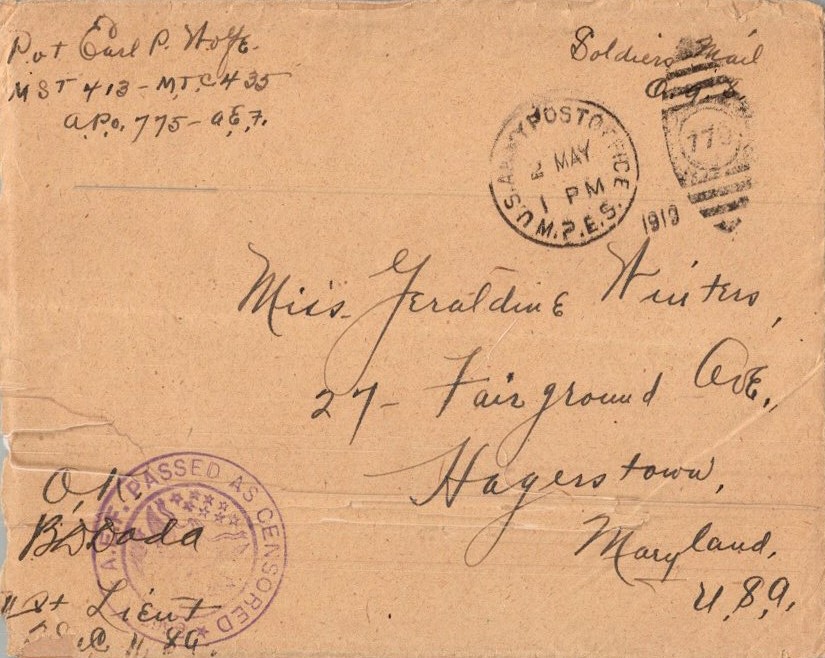 Pvt Earl P. Wolfe.
MST 413 - M.T.C. 435
A.P.O. 775 - A.E.F.
Soldiers Mail
U.S. ARMY POST OFFICE
2 MAY
1 PM
M.P.E.S.
1919
Miss. Geraldine Winters,
27 - Fairground Ave.,
Hagerstown,
Maryland,
U.S.A.
O.K.
A.E.F. PASSED AS CENSORED
1st Lieut